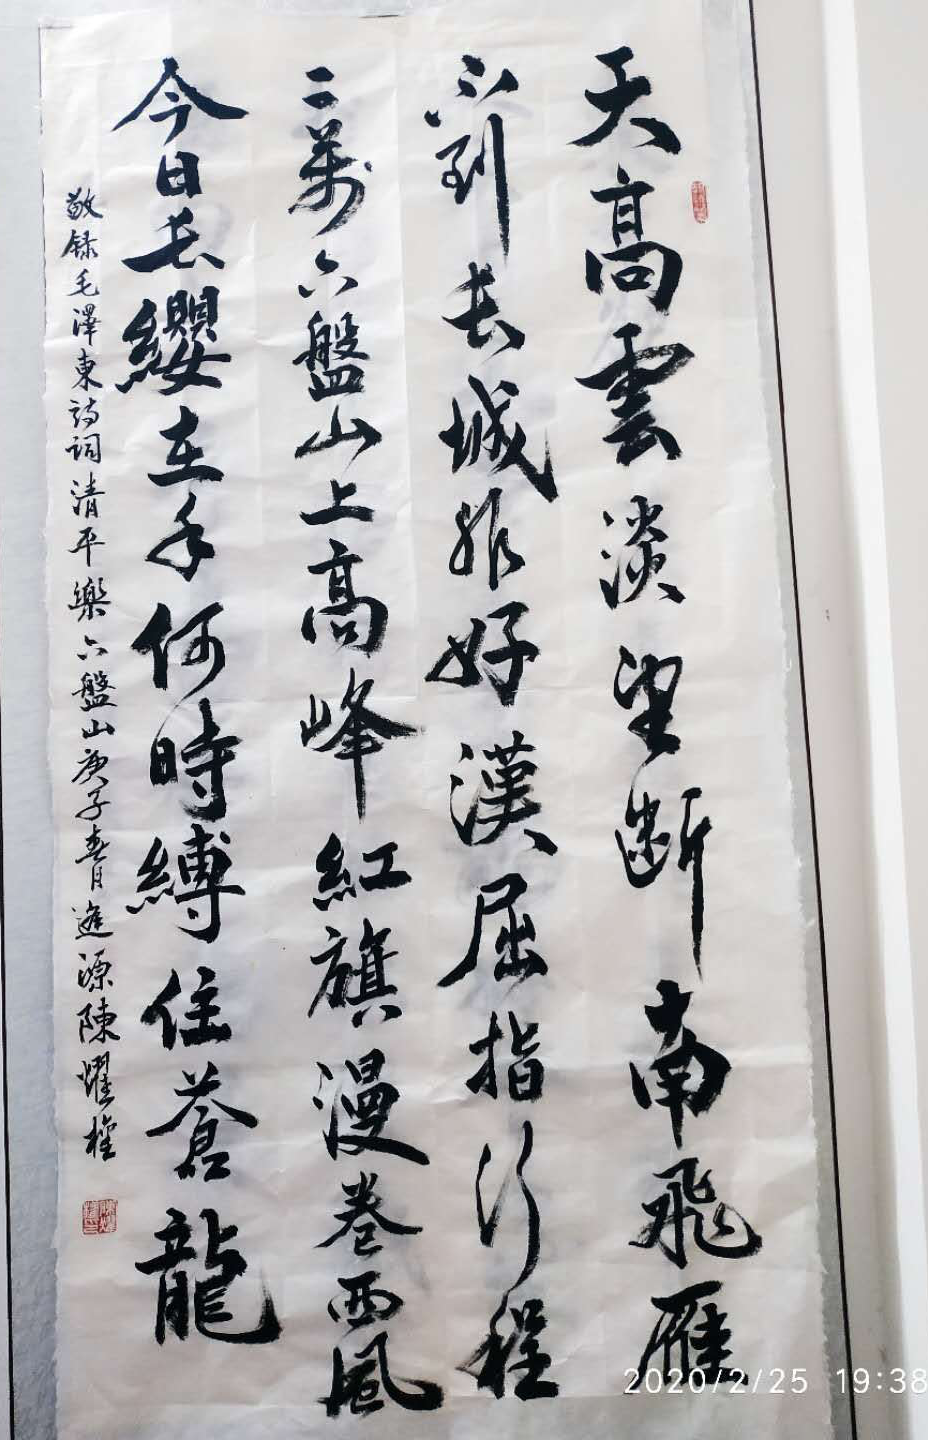 天高雲淡望断南飛雁
不到长城非好漢屈指行程
二萬六盤山上高峰紅旗漫卷西風
今日长纓在手何時縛住蒼龍
敬録毛澤東詩詞清平樂六盤山庚子春月進源陳耀權
2020/2/25 19:38